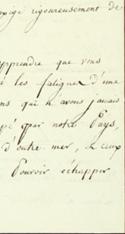 exigé rigoureusement de
apprendre que vous
é les fatigues d'une
ns qui n'avons jamais
pé par notre Pays,
d'outre mer, & ceux
Pouvoir échapper